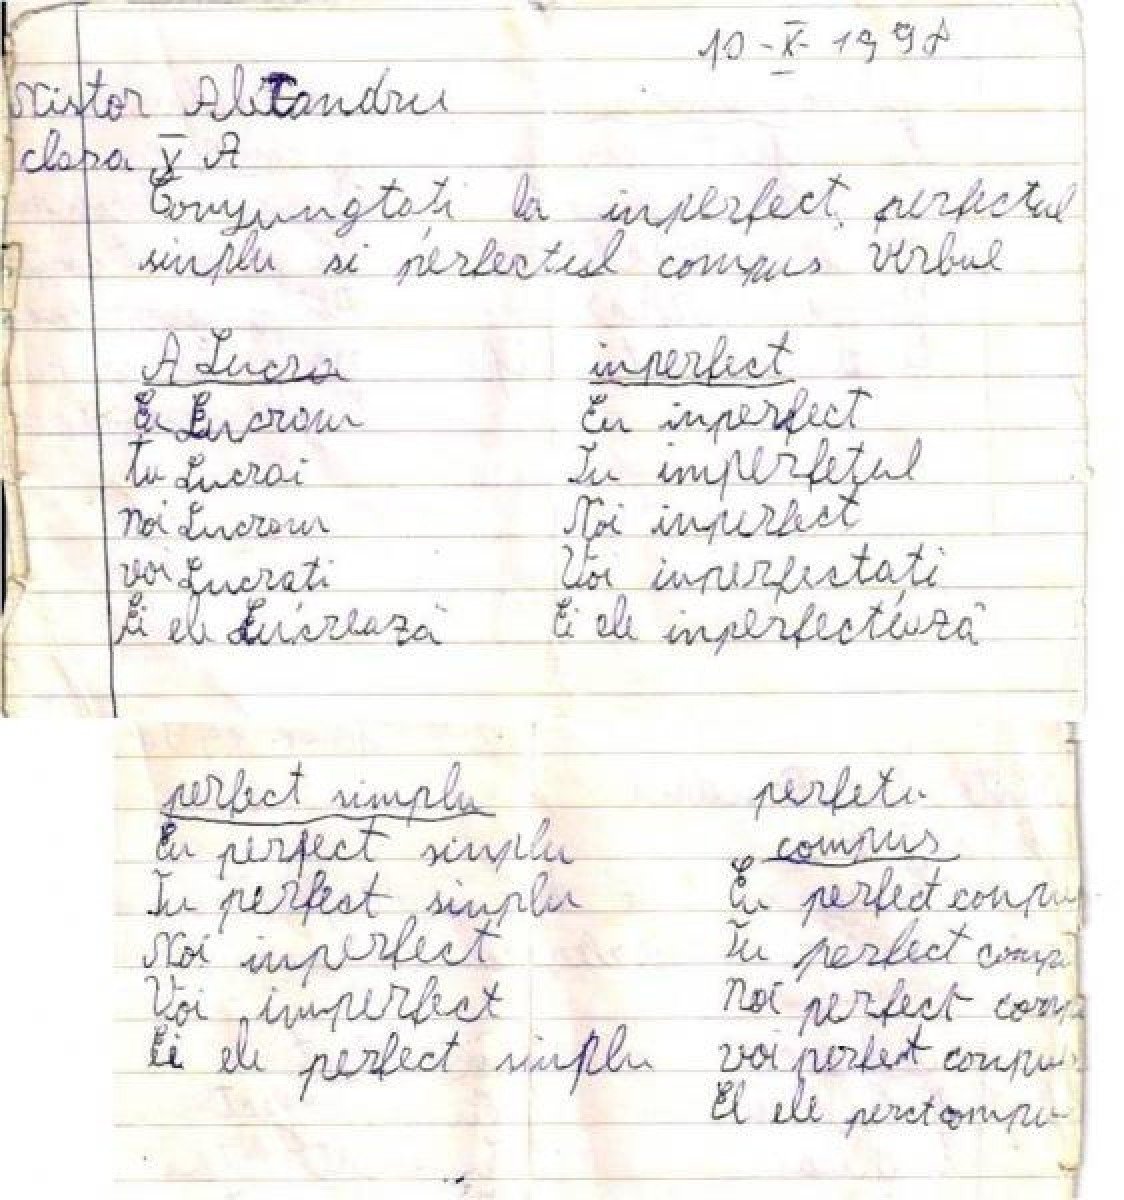 10-X-1998
Nistor Alexandru
clasa V A
Conjungtati la inperfect, perfectul
sinplu si perfectul compus verbul
A Lucra
Eu Lucram
tu Lucrai
noi Lucram
voi Lucrati
Ei ele Lucrează
inperfect
Eu inperfect
Tu imperfețul
Noi inperfect
Voi inperfectati
Ei ele inperfectează
perfect simplu
Eu perfect sinplu
Tu perfect sinplu
Noi inperfect
Voi imperfect
Ei ele perfect sinplu
perfetu
compus
Eu perfect conpu
Tu perfect comp
Noi perfect comp
voi perfect conpu
El ele perctompu